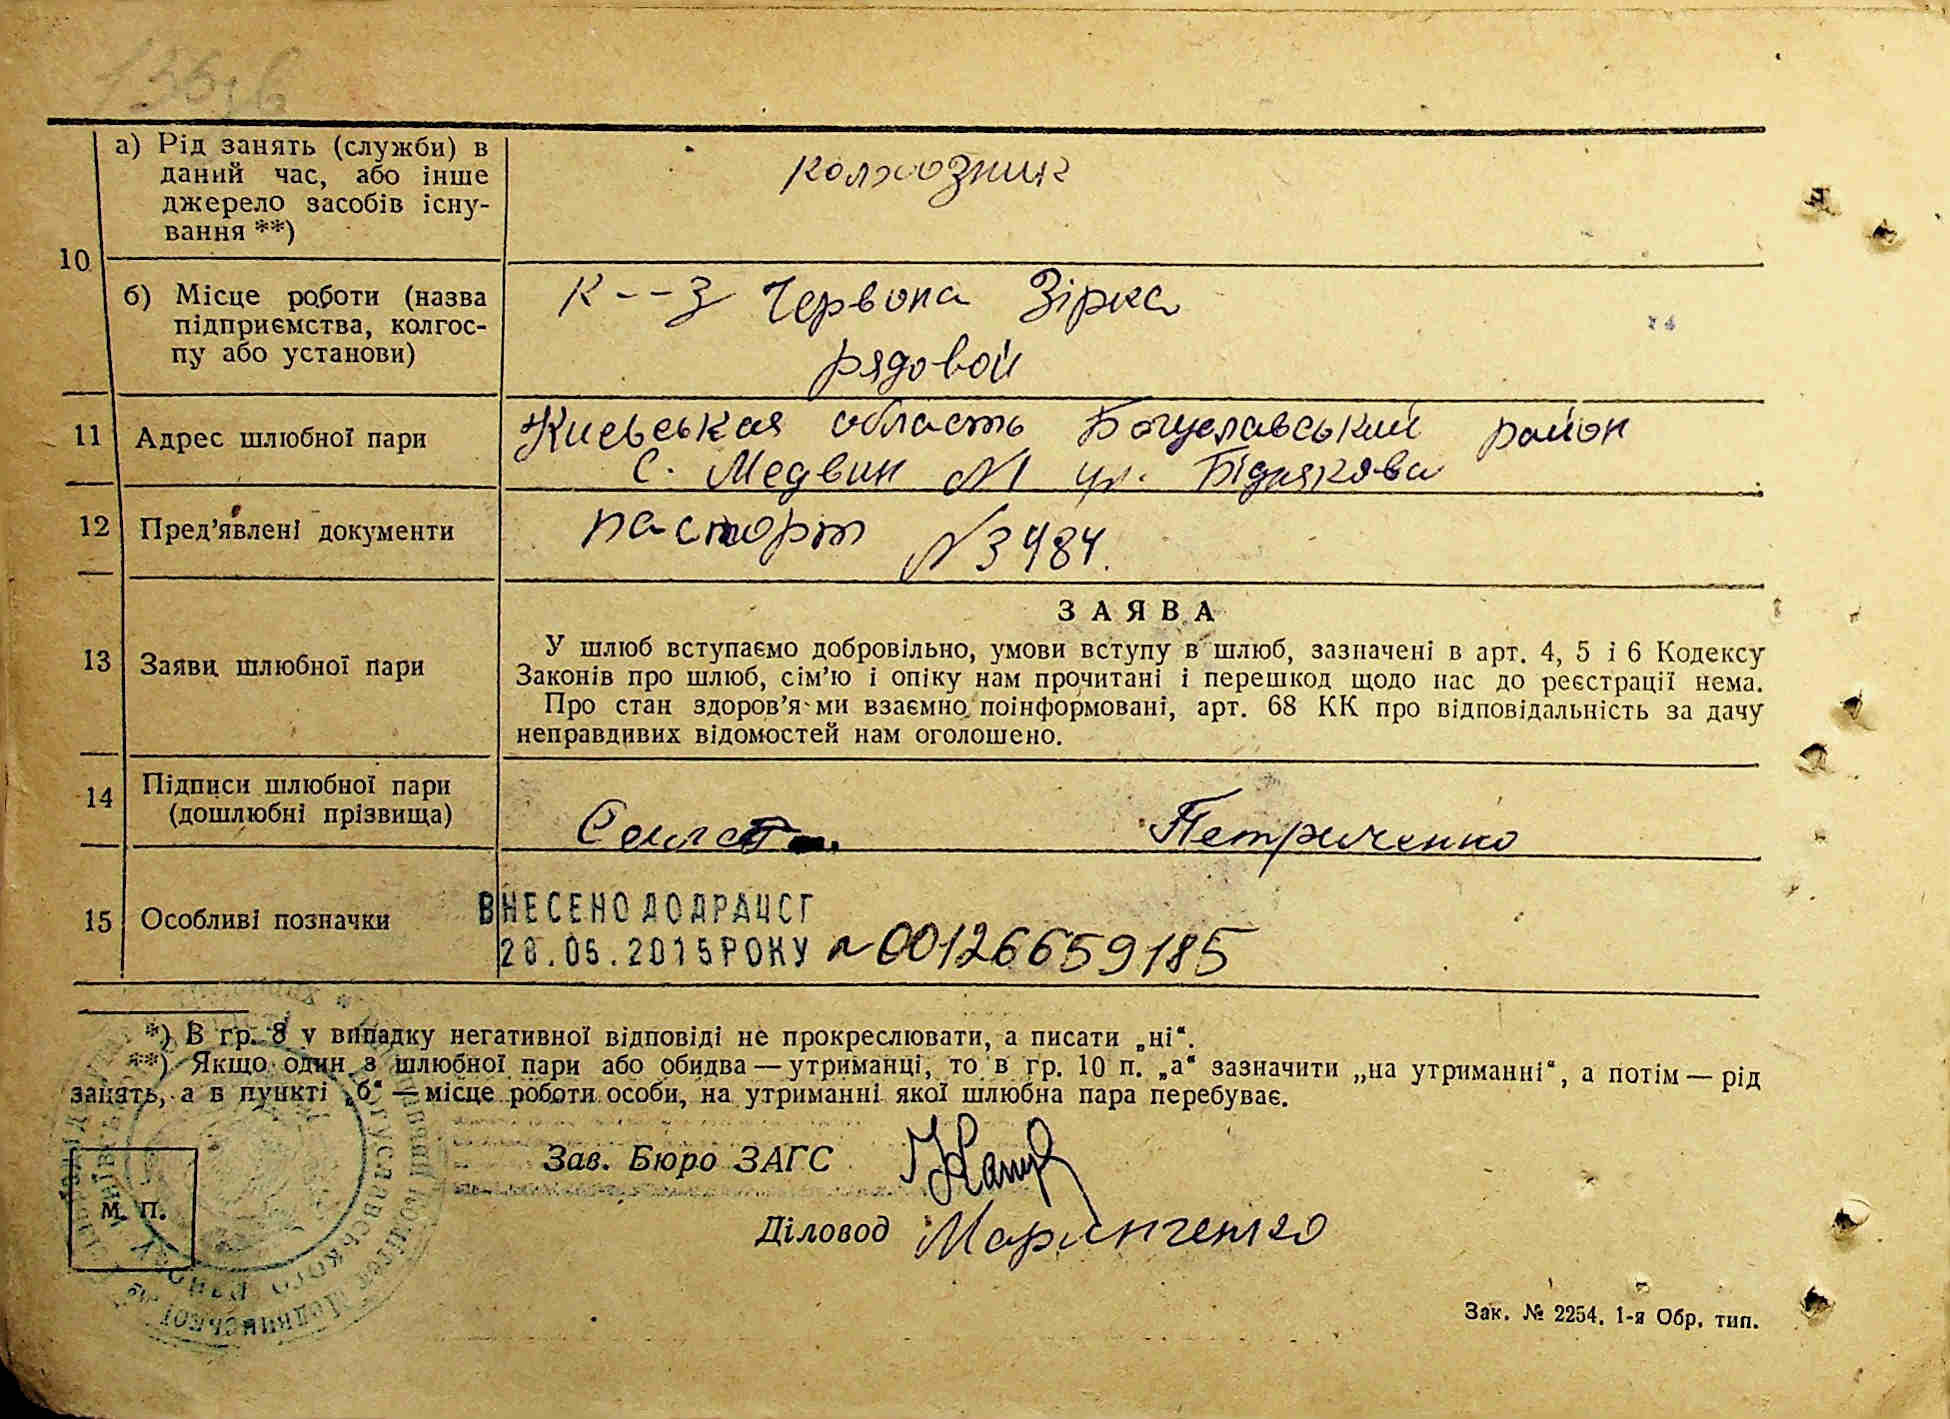 а) Рід занять (служби) в
даний час, або інше
джерело засобів існу-
вання **)
колхозник
10
б) Місце роботи (назва
підприємства, колгос-
пу або установи)
К--З Червона Зірка
рядовой
11 Адрес шлюбної пари
Киевськая область Богуславський район
С. Медвин М ул. Біднякова
12 Пред’явлені документи
паспорт N 3484.
13 Заяви шлюбної пари
ЗАЯВА
У шлюб вступаємо добровільно, умови вступу в шлюб, зазначені в арт. 4, 5 і 6 Кодексу
Законів про шлюб, сім’ю і опіку нам прочитані і перешкод щодо нас до реєстрації нема.
Про стан здоров’я ми взаємно поінформовані, арт. 68 КК про відповідальність за дачу
неправдивих відомостей нам оголошено.
14 Підписи шлюбної пари
(дошлюбні прізвища)
Петриченко
15 Особливі позначки
ВНЕСЕНО ДО ДРАЦСГ
28.05.2015 РОКУ N 00126659185
*) В гр. 8 у випадку негативної відповіді не прокреслювати, а писати „ні“.
**) Якщо один з шлюбної пари або обидва — утриманці, то в гр. 10 п. „а“ зазначити „на утриманні“, а потім — рід
занять, а в пункті „б“ — місце роботи особи, на утриманні якої шлюбна пара перебуває.
Зав. Бюро ЗАГС
Діловод Маринченко
М. П.
Зак. № 2254. 1-я Обр. тип.